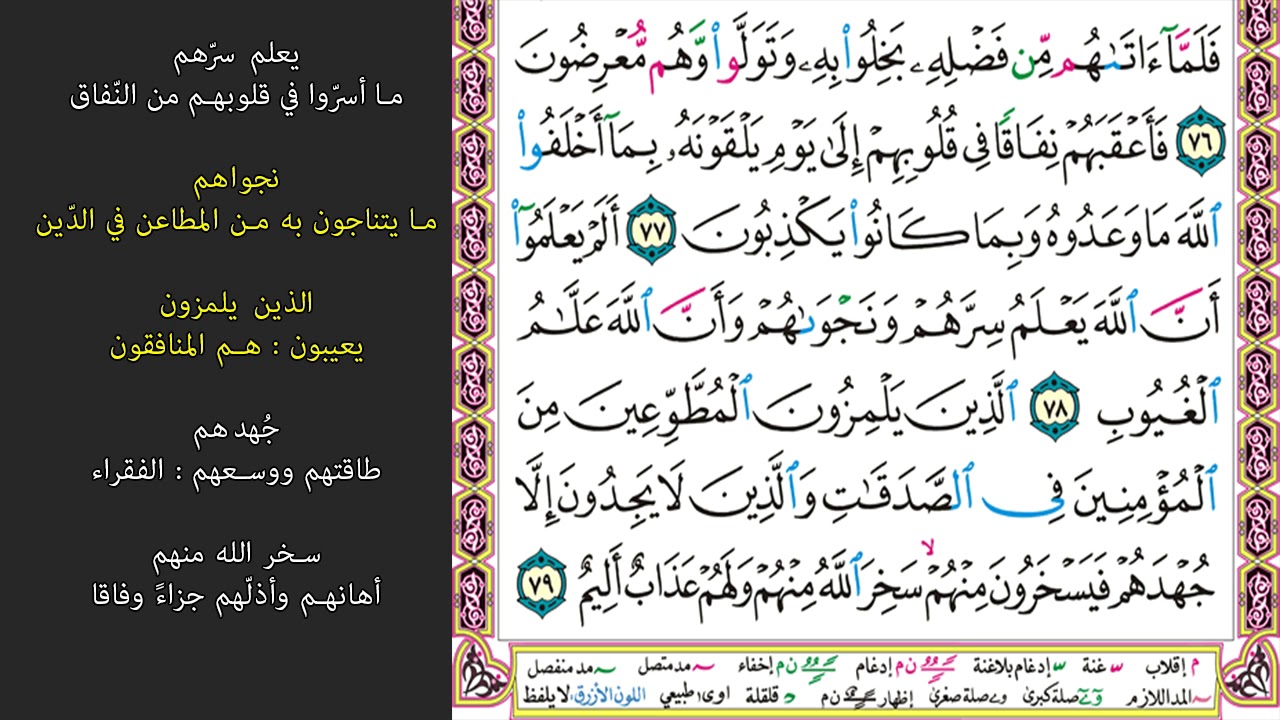 فَلَمَّآ ءَاتَىٰهُم مِّن فَضْلِهِۦ بَخِلُوا۟ بِهِۦ وَتَوَلَّوا۟ وَّهُم مُّعْرِضُونَ
٧٦ فَأَعْقَبَهُمْ نِفَاقًا فِى قُلُوبِهِمْ إِلَىٰ يَوْمِ يَلْقَوْنَهُۥ بِمَآ أَخْلَفُوا۟
ٱللَّهَ مَا وَعَدُوهُ وَبِمَا كَانُوا۟ يَكْذِبُونَ ٧٧ أَلَمْ يَعْلَمُوٓا۟
أَنَّ ٱللَّهَ يَعْلَمُ سِرَّهُمْ وَنَجْوَىٰهُمْ وَأَنَّ ٱللَّهَ عَلَّٰمُ
ٱلْغُيُوبِ ٧٨ ٱلَّذِينَ يَلْمِزُونَ ٱلْمُطَّوِّعِينَ مِنَ
ٱلْمُؤْمِنِينَ فِى ٱلصَّدَقَٰتِ وَٱلَّذِينَ لَا يَجِدُونَ إِلَّا
جُهْدَهُمْ فَيَسْخَرُونَ مِنْهُمْ ۙ سَخِرَ ٱللَّهُ مِنْهُمْ وَلَهُمْ عَذَابٌ أَلِيمٌ ٧٩
م إقلاب س غنة س إدغام بلاغنة ن م إدغام ن م إخفاء مد متصل مد منفصل
المد اللازم صلة كبرى صلة صغرى إظهار ن م قلقلة طبيعي اللون الأزرق: لا يلفظ
يعلم سرّهم
ما أسرّوا في قلوبهم من النّفاق
نجواهم
ما يتناجون به من المطاعن في الدّين
الذين يلمزون
يعيبون : هم المنافقون
جُهدهم
طاقتهم ووسعهم : الفقراء
سخر الله منهم
أهانهم وأذلّهم جزاءً وفاقا